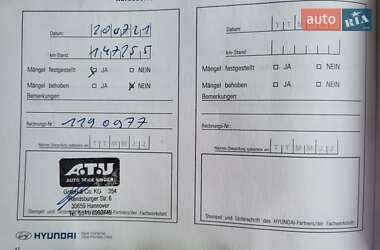 auto RIA
Datum: 200721
km-Stand: 147255
Mängel festgestellt JA NEIN
Mängel behoben JA NEIN
Bemerkungen:
Rechnungs-Nr.: 1190977
Nächste Überprüfung spätestens am: T T M M J J
A.T.U
AUTO TEILE UNGER
GmbH & Co. KG 354
Flensburger Str. 6
30659 Hannover
Stempel und Unterschrift des HYUNDAI-Partners/der Fachwerkstatt
HYUNDAI
Datum: T T M M J J
km-Stand:
Mängel festgestellt JA NEIN
Mängel behoben JA NEIN
Bemerkungen:
Rechnungs-Nr.:
Nächste Überprüfung spätestens am: T T M M J J
Stempel und Unterschrift des HYUNDAI-Partners/der Fachwerkstatt